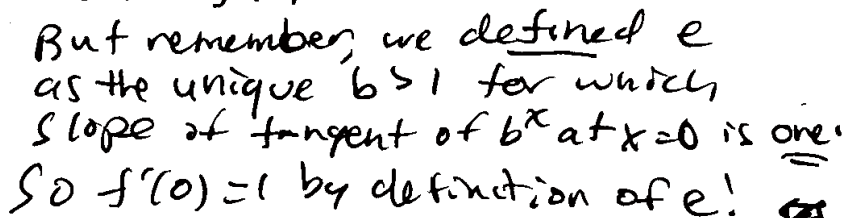 But remember, we defined e
as the unique b>1 for which
slope of tangent of b^x at x=0 is one.
So f'(0)=1 by definition of e!